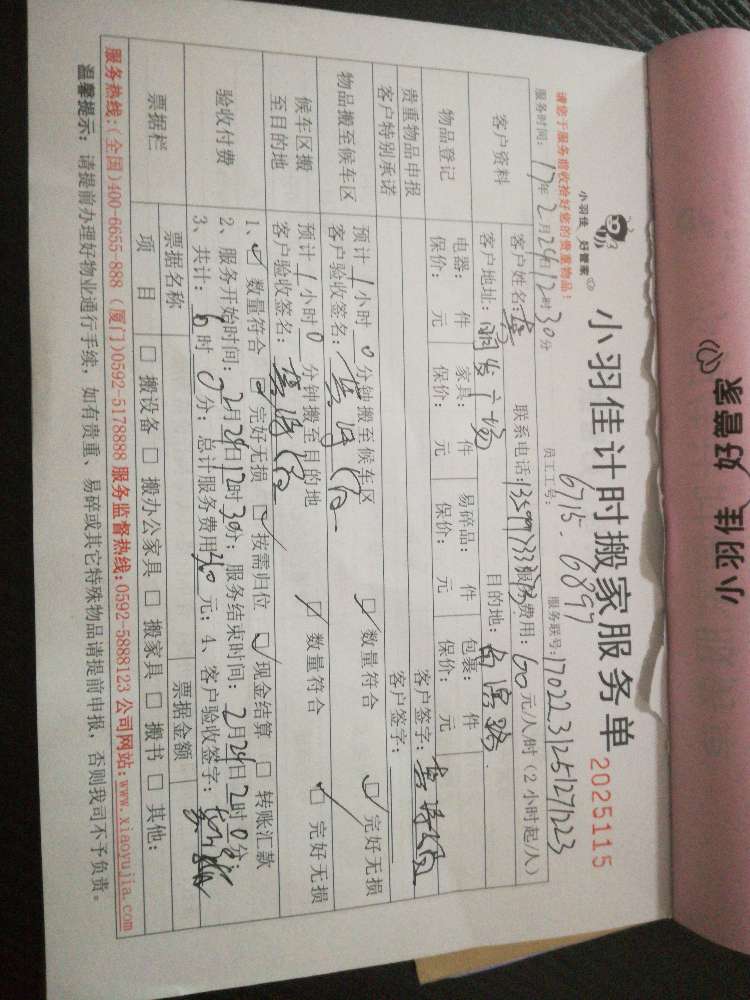 小羽佳 好管家
小羽佳 好管家
小羽佳计时搬家服务单
2025115
请您于服务前收拾好您的贵重物品!
员工工号:
6715-6897
服务时间: 17年2月24日12时30分
服务联号:
客户资料
客户姓名: 联系电话: 服务费用: 60元/人/时(2小时起/人)
客户地址: 目的地:
物品登记
电器: 件 家具: 件 易碎品: 件 包裹: 件
保价: 元 保价: 元 保价: 元 保价: 元
贵重物品申报 客户签字:
客户特别承诺 客户签字:
物品搬至候车区
预计1小时0分钟搬至候车区 数量符合 完好无损
客户验收签名:
候车区搬至目的地
预计1小时0分钟搬至目的地 数量符合 完好无损
客户验收签名:
验收付费
1、 数量符合 完好无损 按需归位 现金结算 转账汇款
2、服务开始时间: 2月24日12时30分; 服务结束时间: 2月24日2时0分;
3、共计: 时0分; 总计服务费用 元; 4、客户验收签字:
票据栏
票据名称 票据金额
项目 搬设备 搬办公家具 搬家具 搬书 其他:
服务热线:(全国)400-6655-888 (厦门)0592-5178888 服务监督热线:0592-5888123 公司网站:www.xiaoyujia.com
温馨提示: 请提前办理好物业通行手续, 如有贵重、易碎或其它特殊物品请提前申报, 否则我司不予负责。